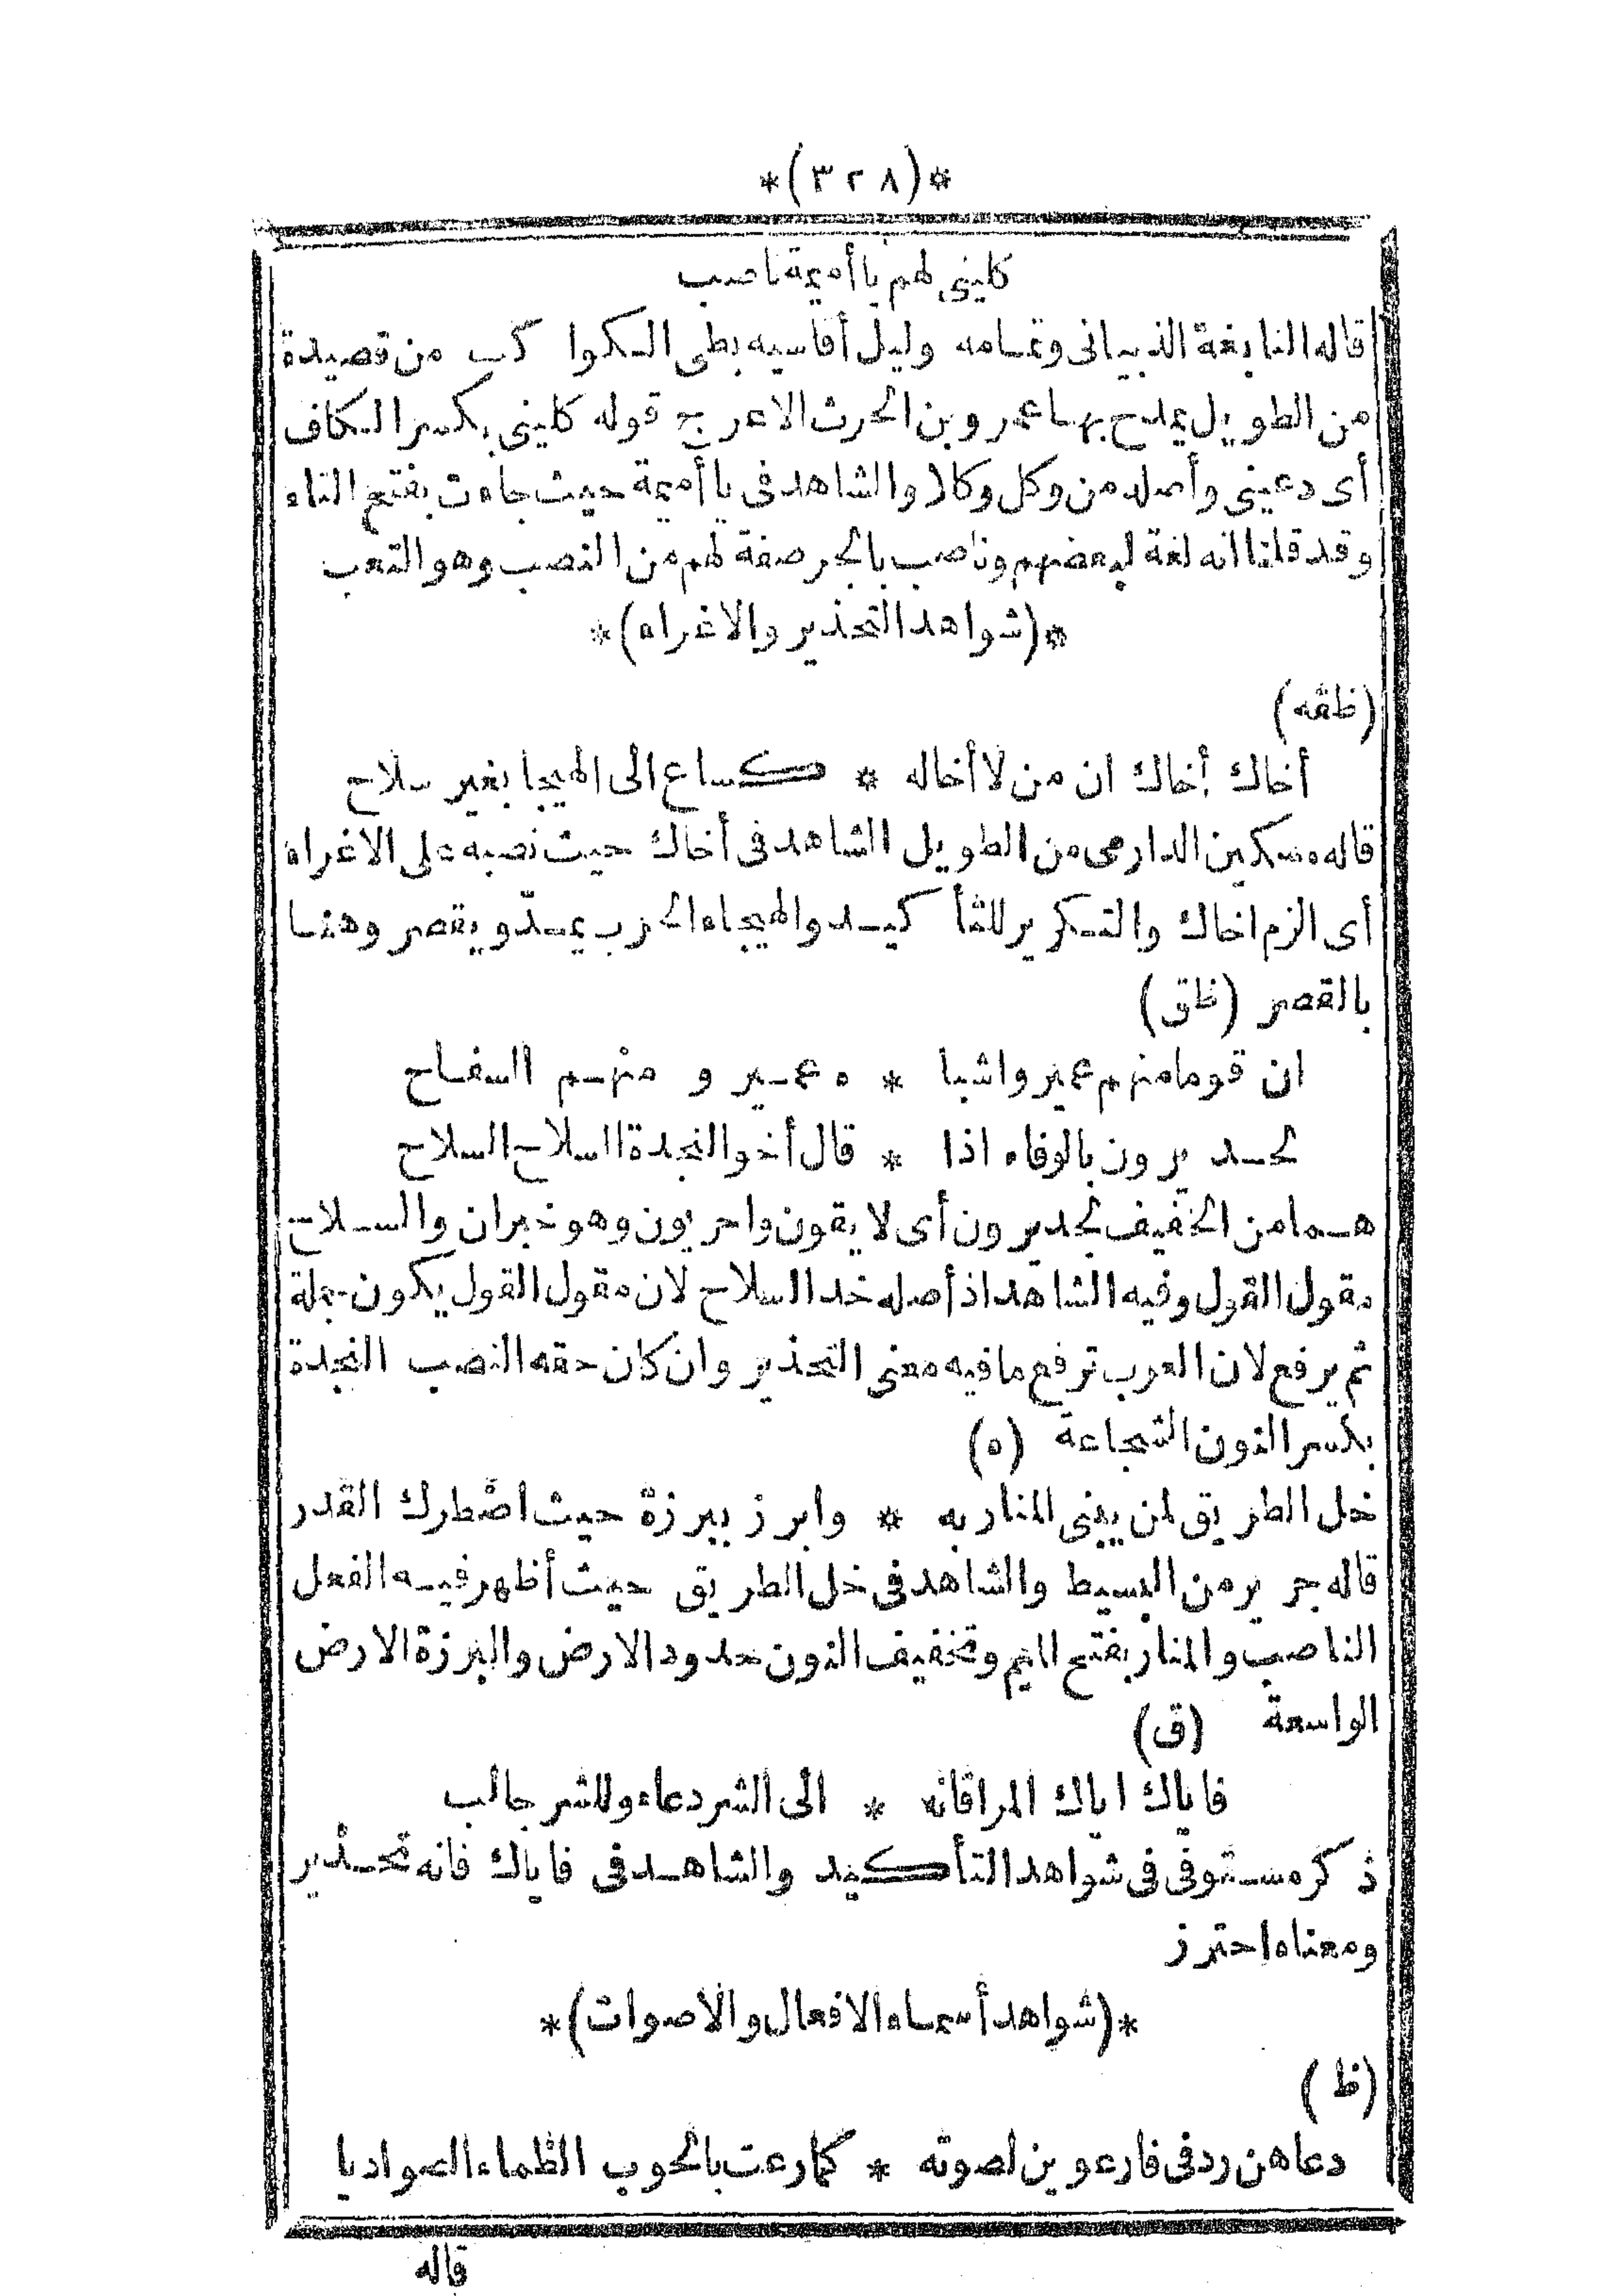 *(٣٢٨)*
كليني لهم يا أميمة ناصب
قاله النابغة الذبياني وتمامه وليل أقاسيه بطى الكواكب من قصيدة
من الطويل يمدح بها عمرو بن الحرث الاعرج قوله كليني بكسر الكاف
أى دعيني وأصله من وكل وكلا والشاهد في يا أميمة حيث جاءت بفتح التاء
وقد قلنا انه لغة لبعضهم وناصب بالجر صفة لهم من النصب وهو التعب
*(شواهد التحذير والاغراء)*
(ظقه)
أخاك أخاك ان من لا أخاله * كساع الى الهيجا بغير سلاح
قاله مسكين الدارمى من الطويل الشاهد فى أخاك حيث نصبه على الاغراء
أى الزم اخاك والتكرير للتأكيد والهيجاء الحرب يمدّ ويقصر وهنا
بالقصر (ظق)
ان قوما منهم عمير واشبا * ه عمير و منهم السفاح
لجديرون بالوفاء اذا * قال أخو النجدة السلاح السلاح
هما من الخفيف لجديرون أى لايقون واحريون وهو خبران والسلاح
مقول القول وفيه الشاهد اذ أصله خذ السلاح لان مقول القول يكون جملة
ثم يرفع لان العرب ترفع ما فيه معنى التحذير وان كان حقه النصب النجدة
بكسر النون الشجاعة (ه)
خل الطريق لمن يبنى المنار به * وابرز ببرزة حيث اضطرك القدر
قاله جرير من البسيط والشاهد فى خل الطريق حيث أظهر فيه الفعل
الناصب والمنار بفتح الميم وتخفيف النون حدود الارض والبرزة الارض
الواسعة (ق)
فاياك اياك المرا فانه * الى الشر دعاء وللشر جالب
ذكر مستوفى فى شواهد التأكيد والشاهد فى فاياك فانه تحذير
ومعناه احترز
*(شواهد أسماء الافعال والاصوات)*
(ظ)
دعاهن ردفى فارعوين لصوته * كما رعت بالحوب الظماء الصواديا
قاله